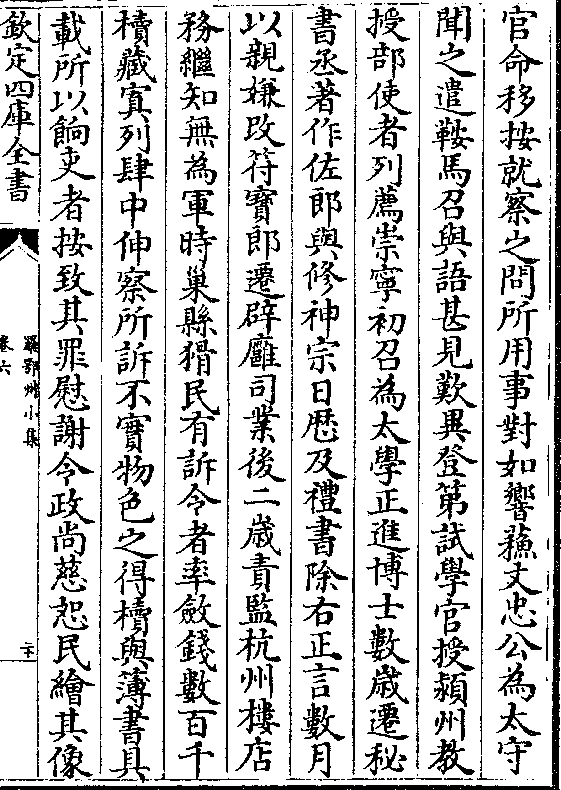 官命移按就察之問所用事對如響蘓丈忠公為太守
聞之遣鞍馬召與語甚見歎異登第試學官授潁州教
授部使者列薦崇寧初召為太學正進博士數歲遷秘
書丞著作佐郎與修神宗日歴及禮書除右正言數月
以親嫌改符寶郎遷辟廱司業後二歲責監杭州樓店
務繼知無為軍時巢縣猾民有訴令者率斂錢數百千
櫝藏寘列肆中伸察所訴不實物色之得櫝與簿書具
載所以餉吏者按致其罪慰謝令政尚慈恕民繪其像
欽定四庫全書
羅鄂州小集
卷六
二十